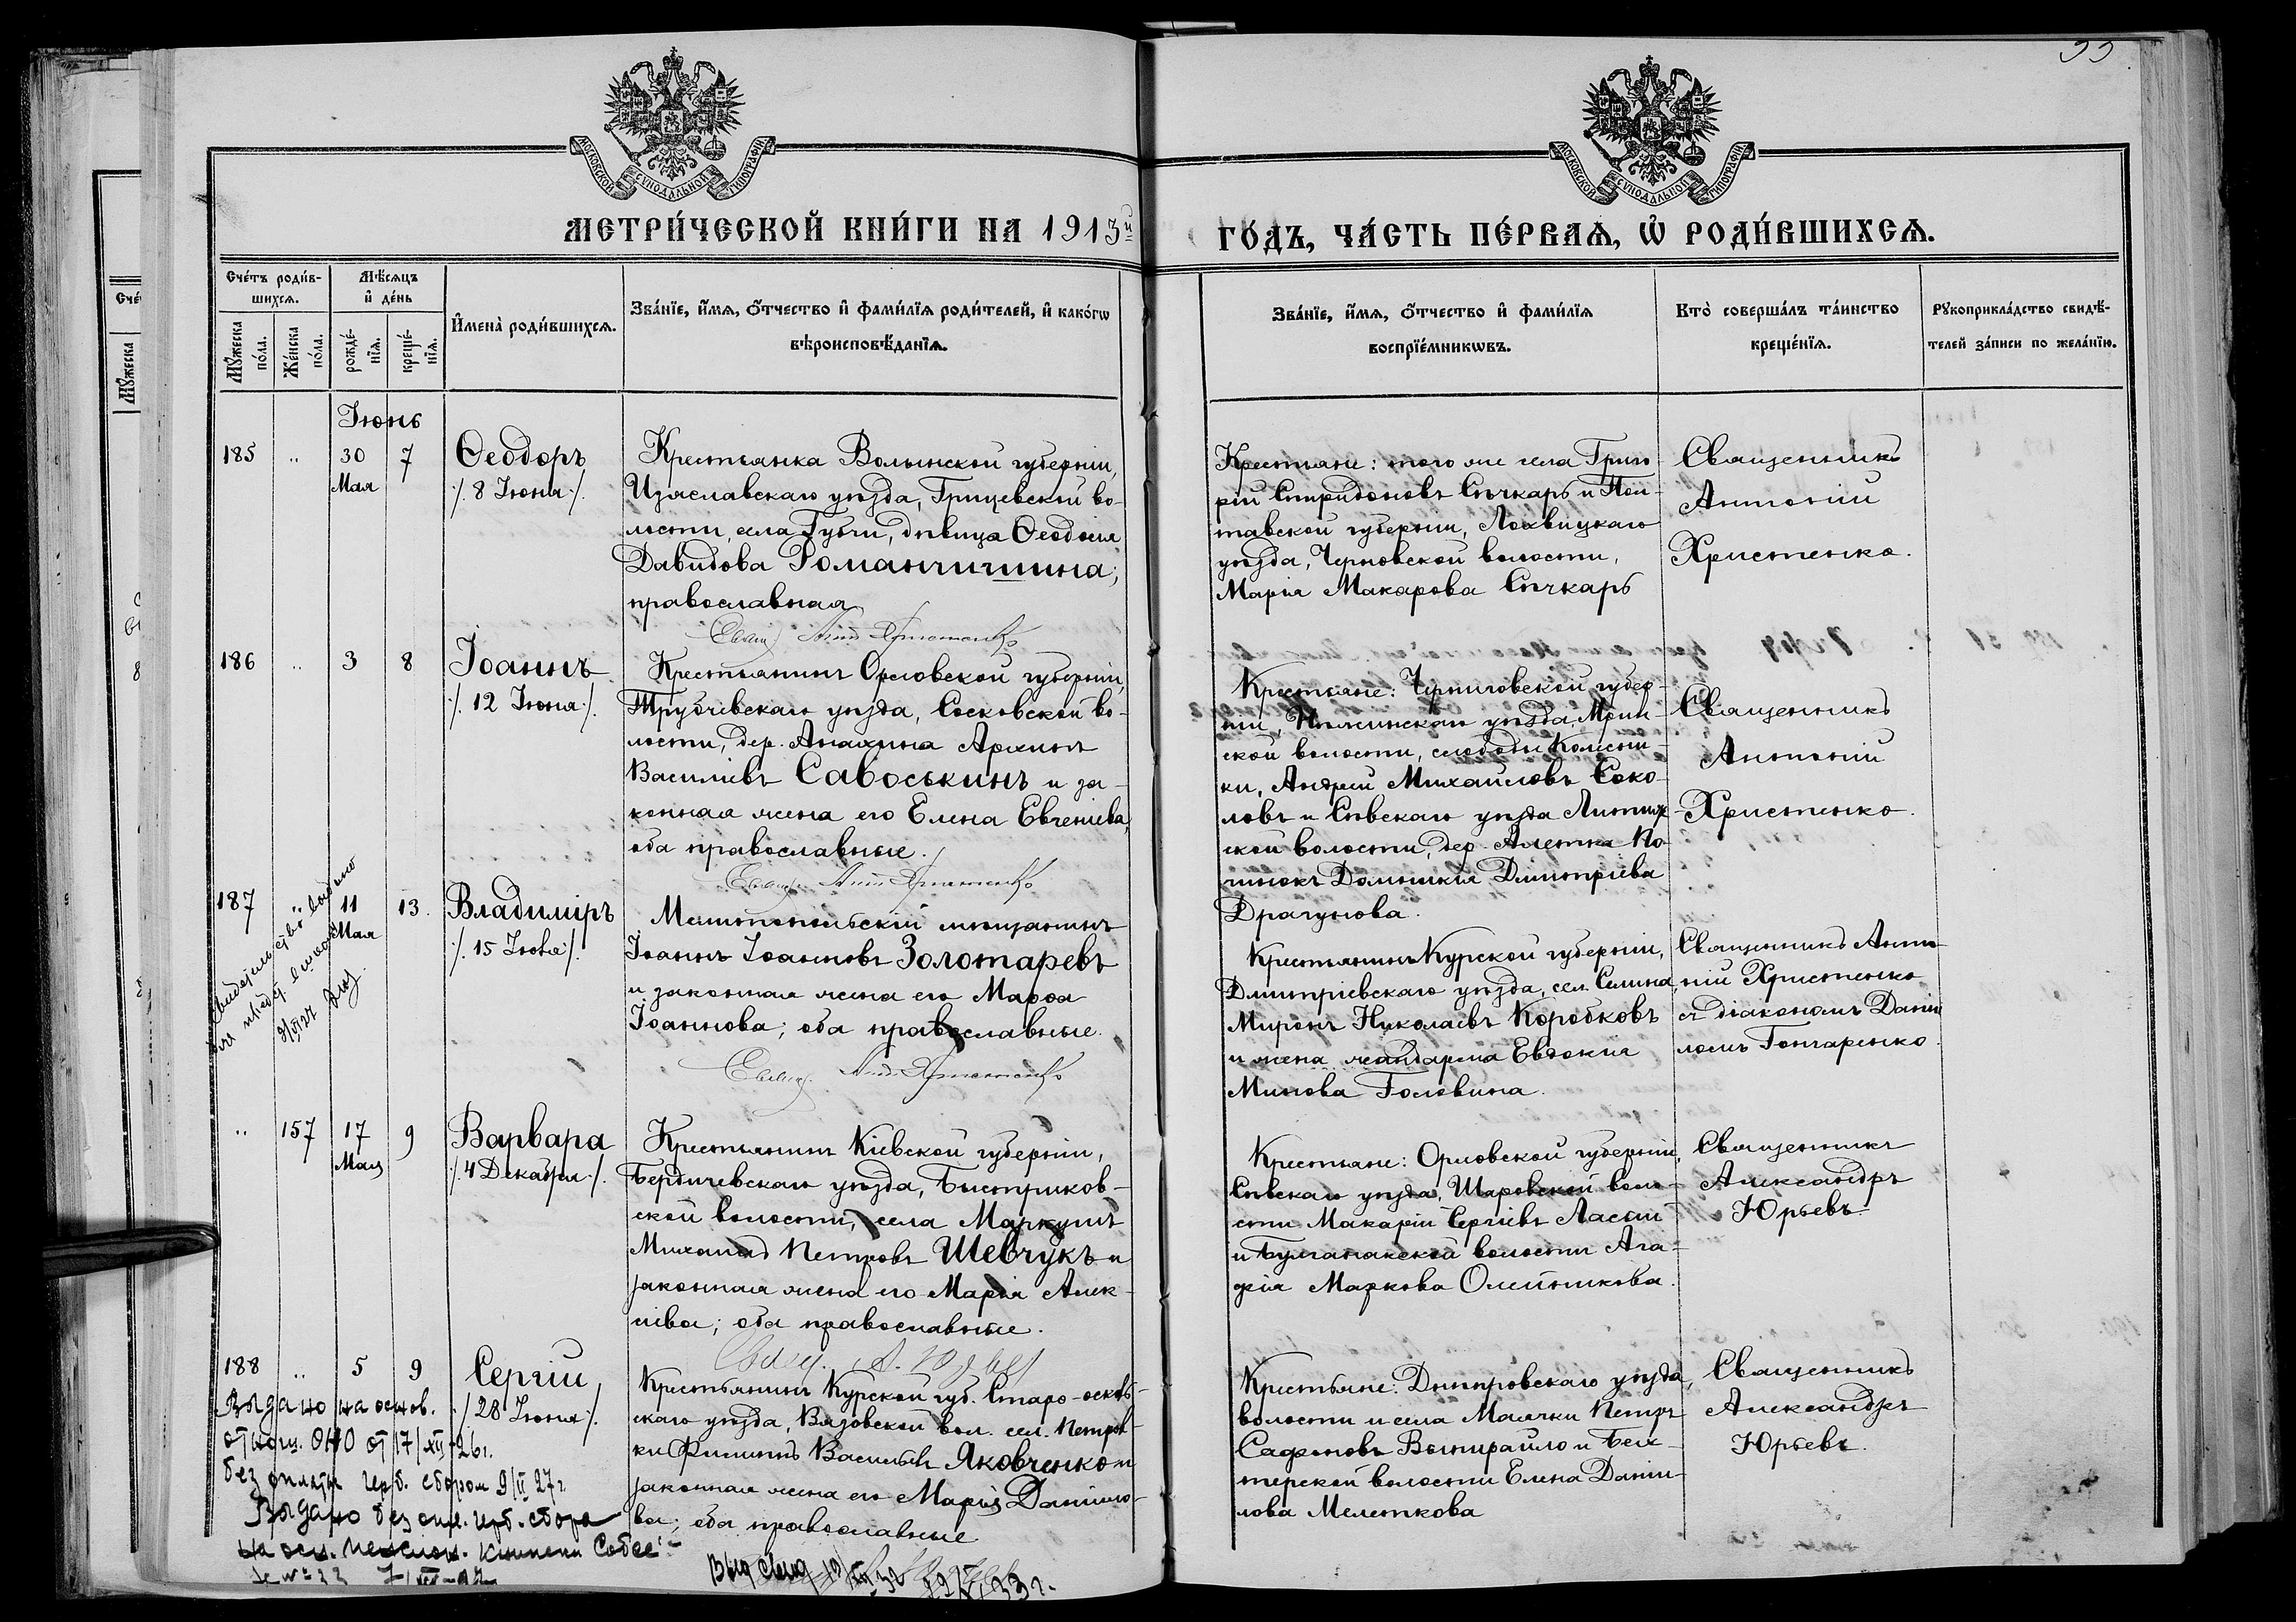 33
МОСКОВСКОЙ СѴНОДАЛЬНОЙ ТИПОГРАФІИ
МОСКОВСКОЙ СѴНОДАЛЬНОЙ ТИПОГРАФІИ
МЕТРИ́ЧЕСКОЙ КНИ́ГИ НА 1913й
ГО́ДЪ, ЧА́СТЬ ПЕ́РВАѦ, Ѡ РОДИ́ВШИХСѦ.
Сче́тъ роди́в-
шихсѧ.
Мꙋ́жеска по́ла.
Же́нска по́ла.
Мѣ́сѧцъ
и҆ де́нь
рожде́-
нїѧ.
креще́-
нїѧ.
И҆мена̀ роди́вшихсѧ.
Зва́нїе, и҆́мѧ, ѻ҆́тчество и҆ фами́лїѧ роди́телей, и҆ како́гѡ
вѣроисповѣ́данїѧ.
Зва́нїе, и҆́мѧ, ѻ҆́тчество и҆ фами́лїѧ
воспрїе́мникѡвъ.
Кто̀ соверша́лъ та́инство
креще́нїѧ.
Рꙋкоприкла́дство свидѣ́-
телей за́писи по жела́нїю.
Іюнь
185 „ 30 Мая 7
Ѳеодоръ
/. 8 Іюня ./
Крестьянка Волынской губерніи,
Изяславскаго уѣзда, Грицевской во-
лости, села Губчи, дѣвица Ѳеодосія
Давидова Романчишина;
православная
Крестьяне: того же села Григо
рій Спиридоновъ Сѣчкарь и Пол-
тавской губерніи, Лохвицкаго
уѣзда, Черновской волости,
Марія Макарова Сѣчкарь
Священникъ
Антоній
Христенко.
Свящ. Ант. Христенко
186 „ 3 8
Іоаннъ
/. 12 Іюня ./
Крестьянинъ Орловской губерніи,
Трубчевскаго уѣзда, Сосковской во-
лости, дер. Анахина Архипъ
Василіевъ Савоськинъ и за-
конная жена его Елена Евгеніева,
оба православные.
Крестьяне: Черниговской губер-
ніи, Нѣжинскаго уѣзда, Мрин-
ской волости, слободы
ки, Андрей Михайловъ Соко-
ловъ и Сѣвскаго уѣзда
ской волости, дер. По-
чинокъ Домникія Дмитріева
Драгунова.
Священникъ
Антоній
Христенко.
Свящ. Ант. Христенко
187 „ 11 Мая 13.
Владиміръ
/. 15 Іюля ./
Мелитопольскій мѣщанинъ
Іоаннъ Іоанновъ Золотаревъ
и законная жена его Марѳа
Іоаннова; оба православные.
Крестьянинъ Курской губерніи,
Дмитріевскаго уѣзда, сел. Селина,
Миронъ Николаевъ Коробковъ
и жена жандарма Евдокія
Минова Головина.
Священникъ Анто-
ній Христенко
съ діакономъ Даніи
ломъ Гончаренко.
Свящ. Ант. Христенко
„ 157 17 Мая 9
Варвара
/. 4 Декабря ./
Крестьянинъ Кіевской губерніи,
Бердичевскаго уѣзда, Быстриков-
ской волости, села Маркушъ
Михаилъ Петровъ Шевчукъ и
законная жена его Марія Алек-
сіева; оба православные.
Крестьяне: Орловской губерніи,
Сѣвскаго уѣзда, Шаровской воло-
сти Макарій Сергіевъ Ласый
и Булганакской волости Ага-
фія Маркова Олейникова.
Священникъ
Александръ
Юрьевъ.
Свящ. А. Юрьевъ
188 „ 5 9
Сергій
/ 28 Іюня ./
Крестьянинъ Курской губ. Старо-осколь-
скаго уѣзда, Вязовской вол. сел. Петров-
ки Филиппъ Васильевъ Яковченко и
законная жена его Марія Даніило-
ва; оба православные
Крестьяне: Днѣпровскаго уѣзда,
волости и села Маячки Петръ
Сафоновъ Вытирайло и Бех-
терской волости Елена Даніи-
лова Мелеткова
Священникъ
Александръ
Юрьевъ.
Выдано на основ.
отнош. ОНО от 17/XII-26г.
без оплаты герб. сбором 9/II 27г
Выдано без опл. герб. сбора
на осн.